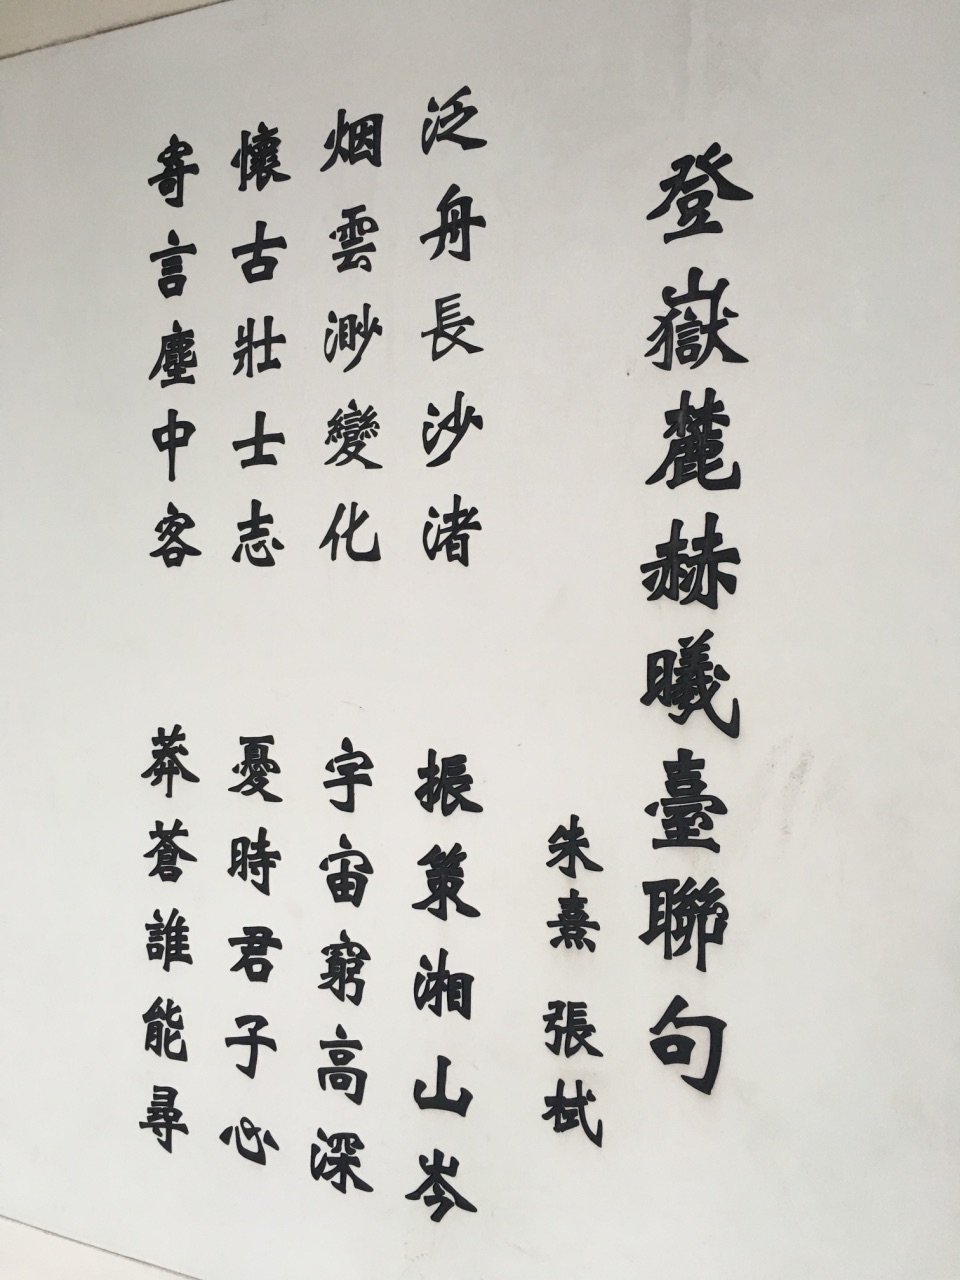 登嶽麓赫曦臺聯句
朱熹 張栻
泛舟長沙渚 振策湘山岑
烟雲渺變化 宇宙窮高深
懷古壯士志 憂時君子心
寄言塵中客 莽蒼誰能尋